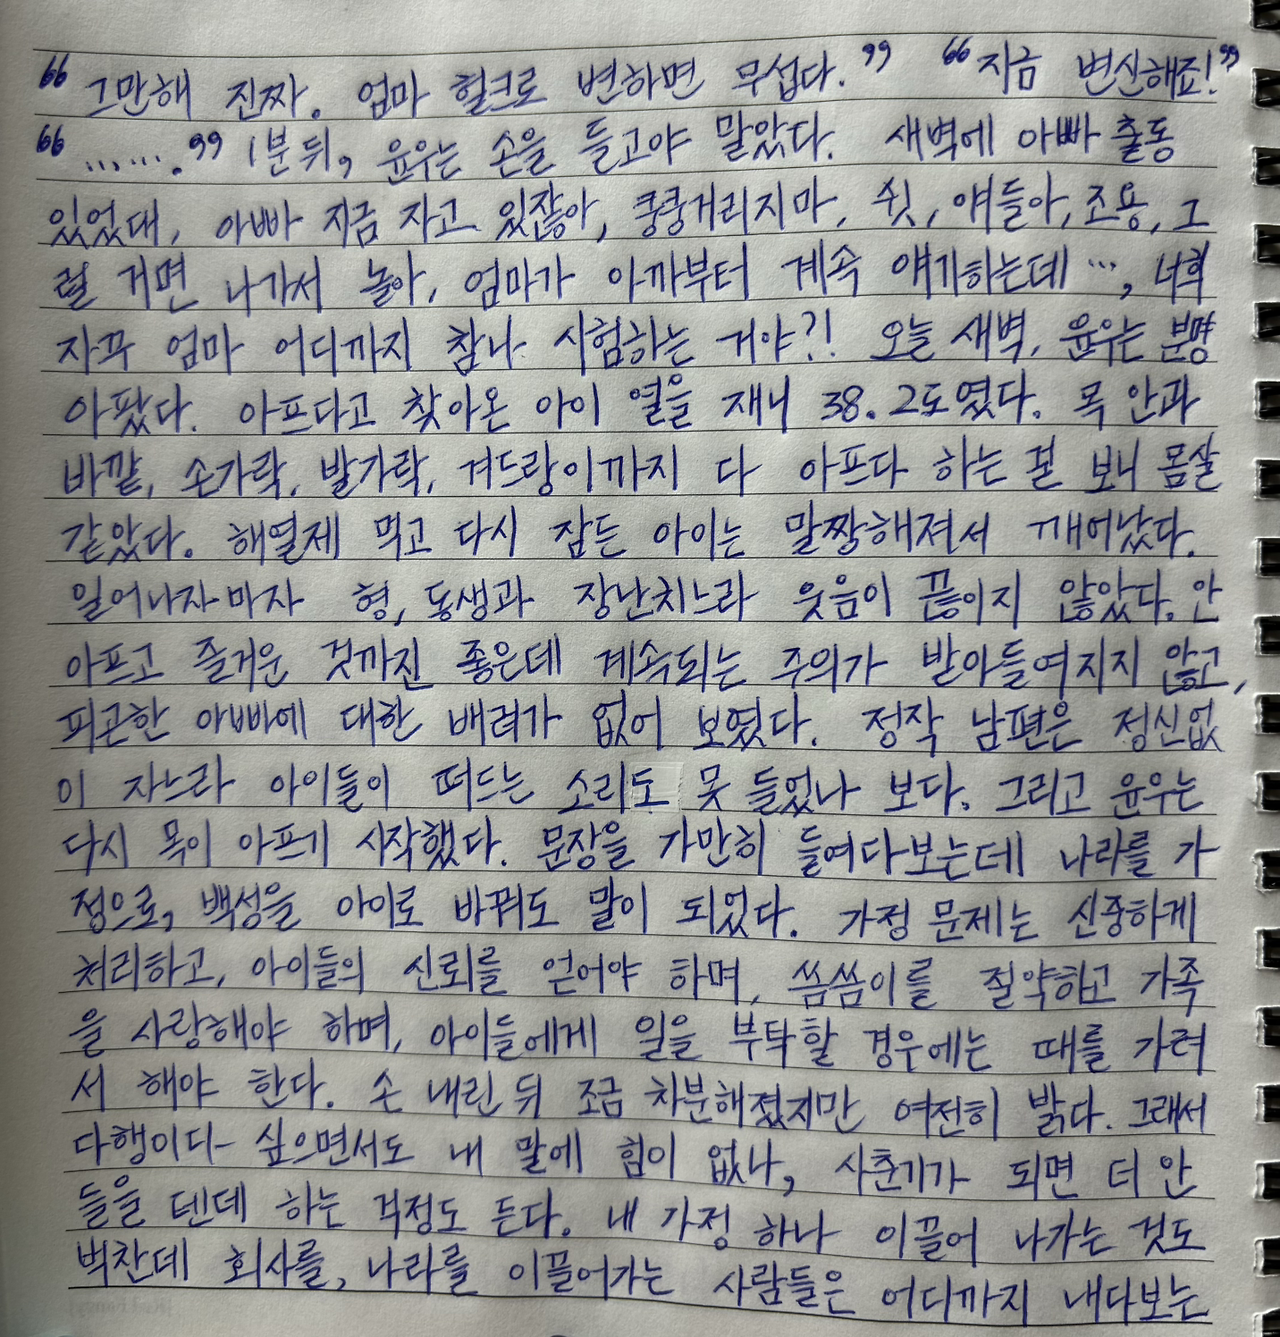 “그만해 진짜. 엄마 헐크로 변하면 무섭다.” “지금 변신해죠!”
“…….” 1분 뒤, 윤우는 손을 들고야 말았다. 새벽에 아빠 출동
있었대, 아빠 지금 자고 있잖아, 쿵쿵거리지마, 쉿, 얘들아, 조용, 그
럴 거면 나가서 놀아, 엄마가 아까부터 계속 얘기하는데…, 너희
자꾸 엄마 어디까지 참나 시험하는 거야?! 오늘 새벽, 윤우는 분명
아팠다. 아프다고 찾아온 아이 열을 재니 38.2도였다. 목 안과
바깥, 손가락, 발가락, 겨드랑이까지 다 아프다 하는 걸 보니 몸살
같았다. 해열제 먹고 다시 잠든 아이는 말짱해져서 깨어났다.
일어나자마자 형, 동생과 장난치느라 웃음이 끊이지 않았다. 안
아프고 즐거운 것까진 좋은데 계속되는 주의가 받아들여지지 않고,
피곤한 아빠에 대한 배려가 없어 보였다. 정작 남편은 정신없
이 자느라 아이들이 떠드는 소리도 못 들었나 보다. 그리고 윤우는
다시 목이 아프기 시작했다. 문장을 가만히 들여다보는데 나라를 가
정으로, 백성을 아이로 바꿔도 말이 되었다. 가정 문제는 신중하게
처리하고, 아이들의 신뢰를 얻어야 하며, 씀씀이를 절약하고 가족
을 사랑해야 하며, 아이들에게 일을 부탁할 경우에는 때를 가려
서 해야 한다. 손 내린 뒤 조금 차분해졌지만 여전히 밝다. 그래서
다행이다 싶으면서도 내 말에 힘이 없나, 사춘기가 되면 더 안
들을 텐데 하는 걱정도 든다. 내 가정 하나 이끌어 나가는 것도
벅찬데 회사를, 나라를 이끌어가는 사람들은 어디까지 내다보는